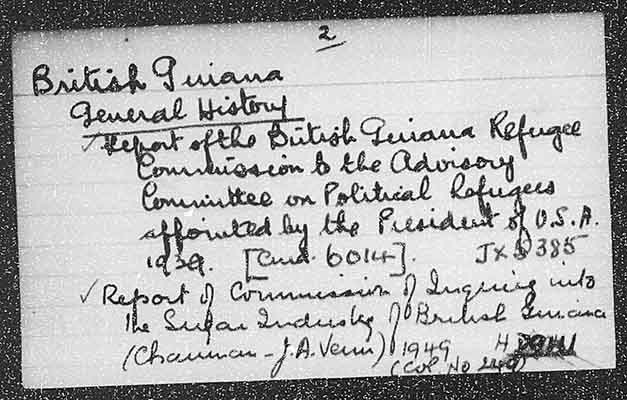 2
British Guiana
General History
✓ Report of the British Guiana Refugee
Commission to the Advisory
Committee on Political Refugees
appointed by the President of U.S.A.
1939. [Cmd. 6014]. JX 5385
✓ Report of Commission of Inquiry into
the Sugar Industry of British Guiana
(Chairman - J.A. Venn) 1949 H
(Col No 249)